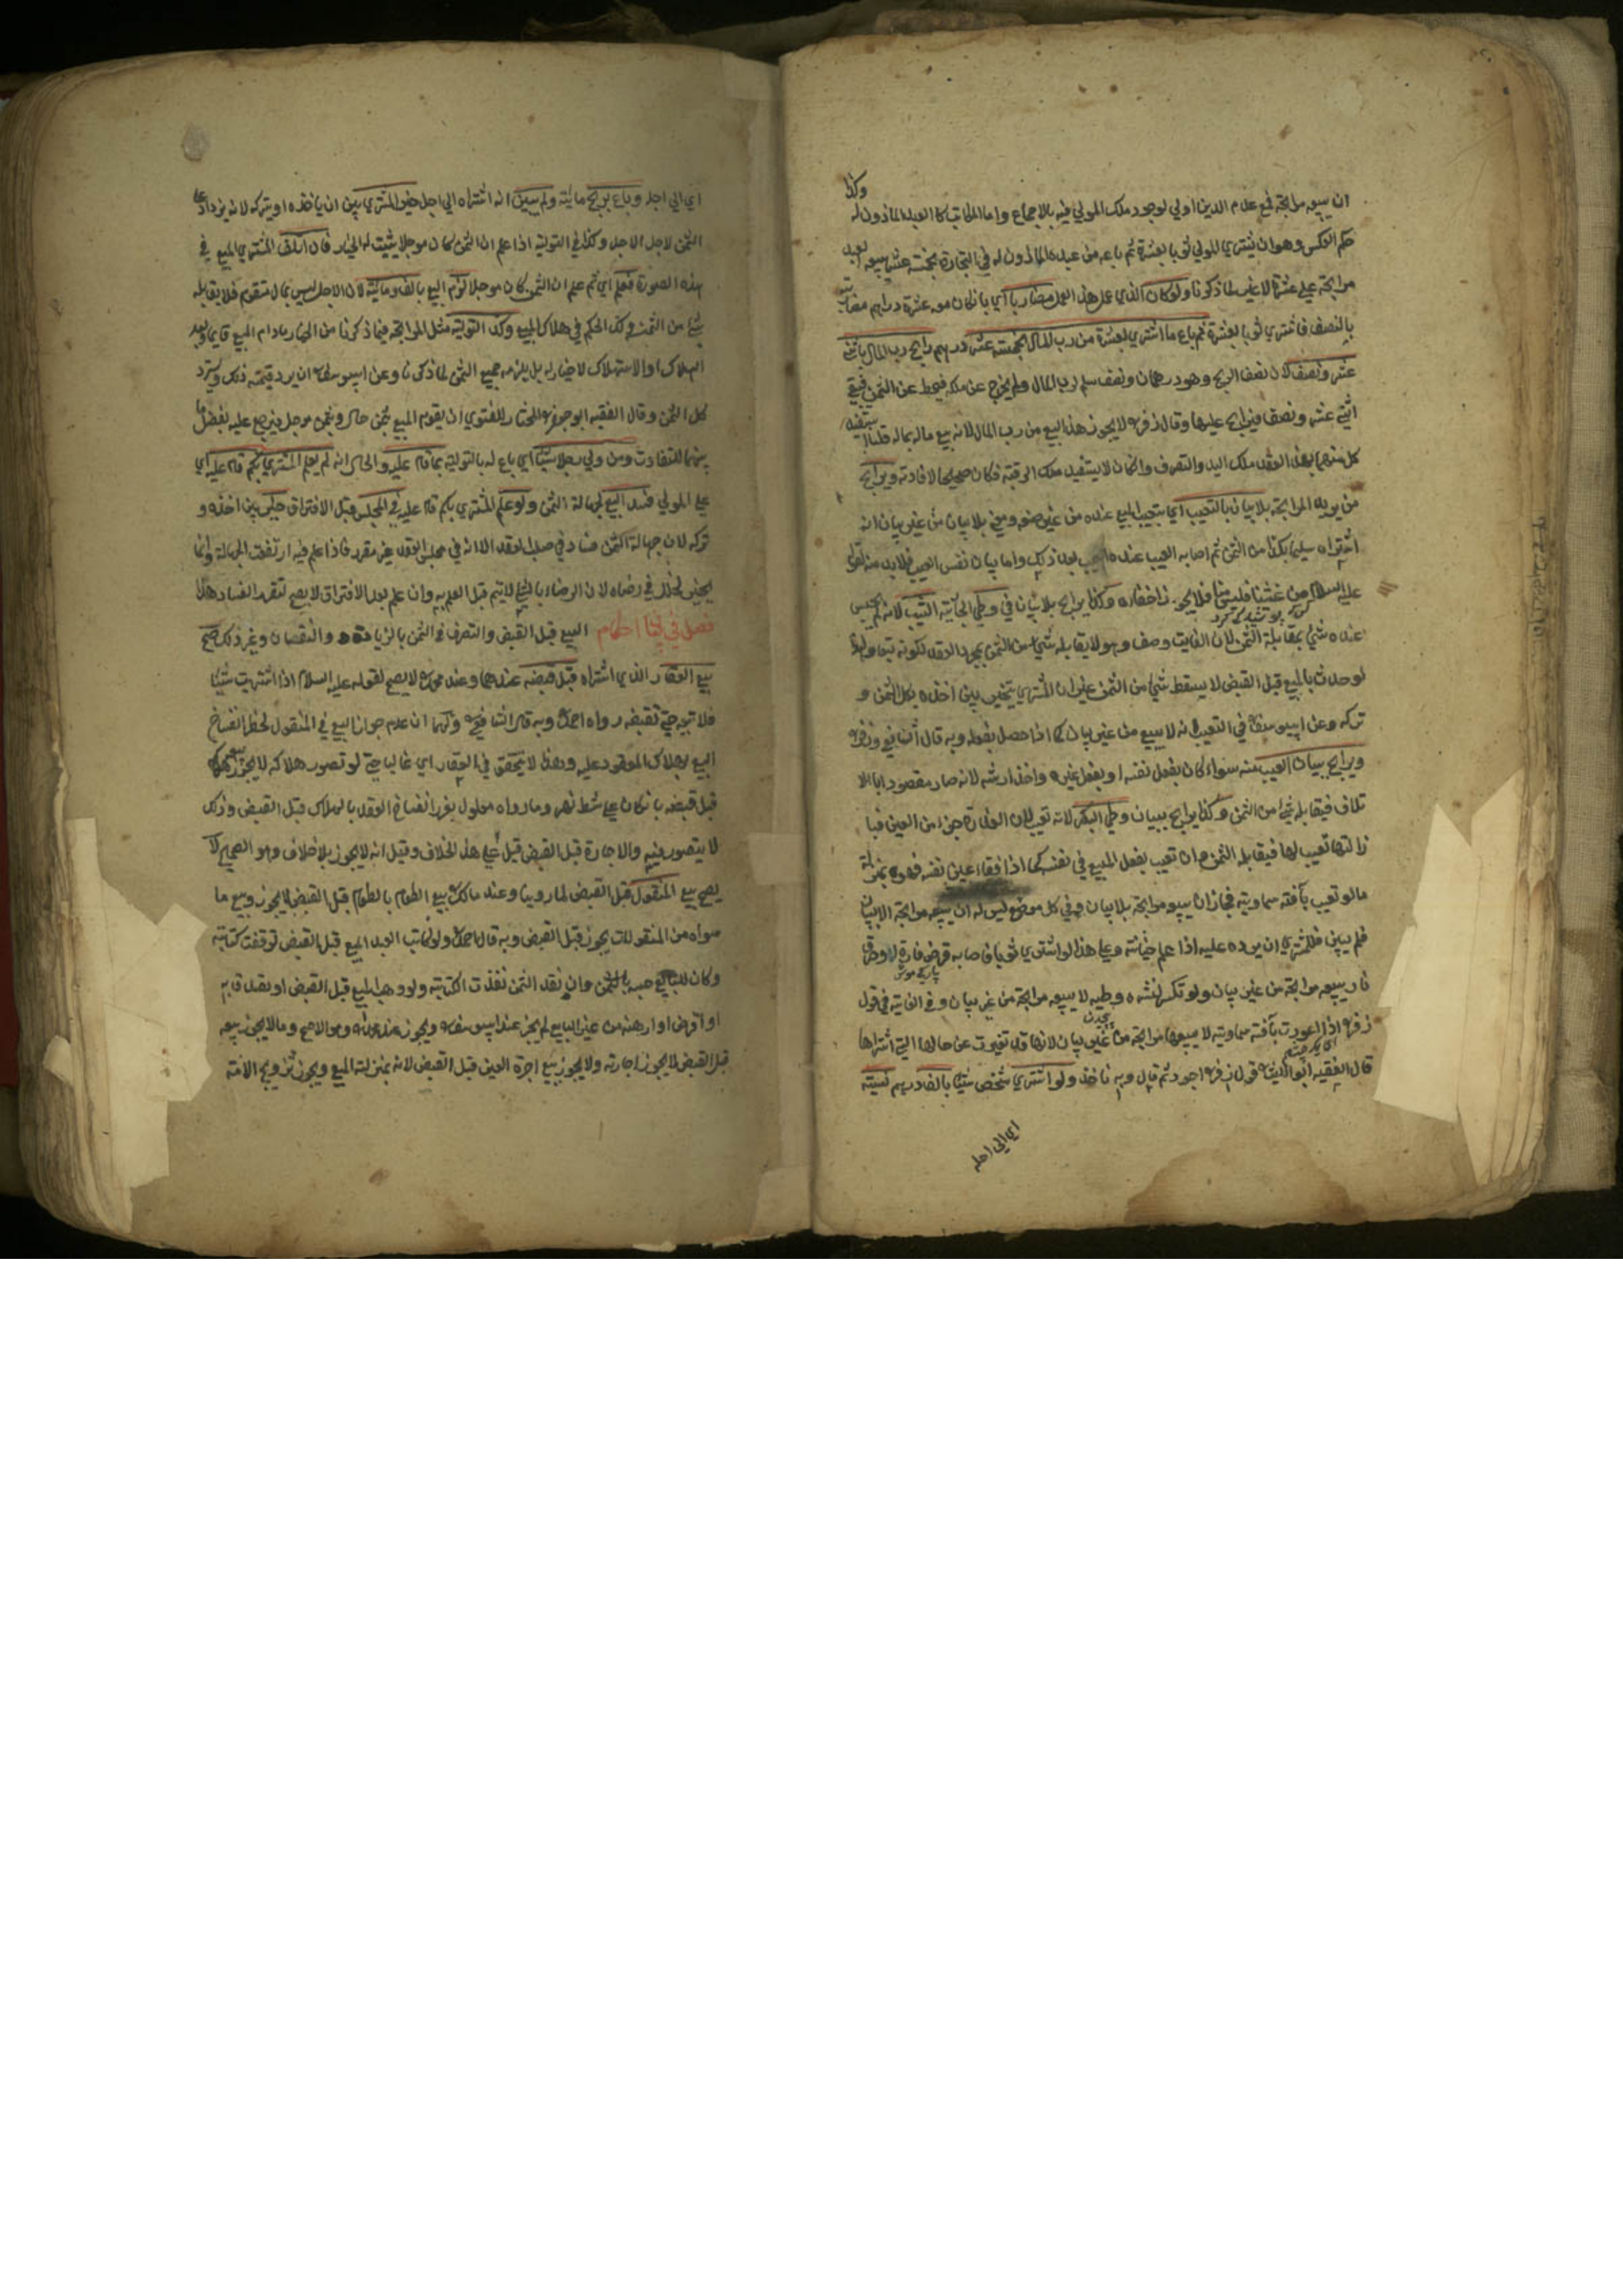 وكذا
ان يبيعه مرابحة فمع عدم الدين اولي لوجود ملك المولي فيه بالاجماع واما المكاتب كالعبد الماذون له
حكم العكس وهو ان يشتري المولي ثوبا بعشرة ثم باعه من عبده الماذون له في التجارة بخمسة عشر يبيعه العبد
مرابحة علي عشرة لا غير لما ذكرنا ولو كان الذي عمل هذا العمل مضاربا اي بان كان معه عشرة دراهم مضاربة
بالنصف فاشتري ثوبا بعشرة ثم باع ما اشتري بعشرة من رب المال بخمسة عشر درهم رابح رب المال باثني
عشر ونصف لان نصف الربح وهو درهمان ونصف سلم لرب المال ولم يخرج عن ملكه فيحط عن الثمن فبقي
اثني عشر ونصف فيرابح عليها وقال زفر لا يجوز هذا البيع من رب المال لانه بيع ماله بماله قلنا يستفيد
كل منهما بهذا العقد ملك اليد والتصرف وان كان لا يستفيد ملك الرقبة فكان صحيحا لافادته ويرابح
من يريد المرابحة بلا بيان بالتعيب اي بتعيب المبيع عنده من غير صنعه ومعني بلا بيان من غير بيان انه
اشتراه سليما بكذا من الثمن ثم اصابه العيب عنده بعد ذلك واما بيان نفس العيب فلا بد منه لقوله
عليه السلام من غشنا فليس منا فلا يجوز اخفاؤه وكذا يرابح بلا بيان في وطي الجارية الثيب لانه لم يحتبس
عنده شيئ بمقابلة الثمن لان الفايت وصف وهو لا يقابله شيئ من الثمن بمجرد العقد لكونه تبعا ولهذا
لو حدث بالمبيع قبل القبض لا يسقط شيئ من الثمن غير ان المشتري يتخير بين اخذه بكل الثمن و
تركه وعن ابي يوسف في التعيب انه لا يبيع من غير بيان كما اذا حصل بفعله وبه قال الشافعي وزفر
ويرابح ببيان العيب منه سواء كان بفعل نفسه او بفعل غيره واخذ ارشه لانه صار مقصودا بالا
تلاف فيقابله شيئ من الثمن وكذا يرابح ببيان وطي البكر لانه تعيب لان العذرة جزء من العين فبا
زالتها تعيب لها فيقابله الثمن وان تعيب بفعل المبيع في نفسه كما اذا فقاء عين نفسه فهو بمنزلة
ما لو تعيب بآفة سماوية فجاز ان يبيعه مرابحة بلا بيان وفي كل موضع ليس له ان يبيعه مرابحة الا ببيان
فلم يبين فللمشتري ان يرده عليه اذا علم خيانته وعلي هذا لو اشتري ثوبا فاصابه قرض فارة او حرق
نار يبيعه مرابحة من غير بيان ولو تكسر بنشره وطيه لا يبيعه مرابحة من غير بيان وفي الغاية في قول
زفر اذا اعورت بآفة سماوية لا يبيعها مرابحة من غير بيان لانها قد تغيرت عن حالها التي اشتراها
قال الفقيه ابو الليث قول زفر اجود ثم قال وبه ناخذ ولو اشتري شخص شيئا بالف درهم نسيئة
اي الي اجل
اي الي اجل وباع بربح مائة ولم يبين انه اشتراه الي اجل خير المشتري بين ان ياخذه او يتركه لانه يزداد
الثمن لاجل الاجل وكذا في التولية اذا علم ان الثمن كان موجلا يثبت له الخيار فان اتلف المشتري المبيع في
هذه الصورة فعلم اي ثم علم ان الثمن كان موجلا لزم البيع بالف ومائة لان الاجل ليس بمال متقوم فلا يقابله
شيئ من الثمن وكذا الحكم في هلاك المبيع وكذا التولية مثل المرابحة فيما ذكرنا من الخيار مادام المبيع قايما وبعد
الهلاك او الاستهلاك لا خيار له بل يلزمه جميع الثمن لما ذكرنا وعن ابي يوسف ان يرد قيمته ذلك ويسترد
كل الثمن وقال الفقيه ابو جعفر المختار للفتوي ان يقوم المبيع بثمن حال وبثمن موجل فيرجع عليه بفضل ما
بينهما للتفاوت ومن ولي رجلا شيئا اي باع له بالتولية بما قام عليه والحال انه لم يعلم المشتري بكم قام عليه اي
علي المولي فسد البيع لجهالة الثمن ولو علم المشتري بكم قام عليه في المجلس قبل الافتراق خير بين اخذه و
تركه لان جهالة الثمن فساد في صلب العقد الا انه في مجلس العقد غير مقرر فاذا علم فيه ارتفعت الجهالة وانما
يخير لخلل في رضاه لان الرضاء بالشيئ لا يتم قبل العلم به وان علم بعد الافتراق لا يصح لتقرر الفساد هذا
فصل في بيان احكام البيع قبل القبض والتصرف في الثمن بالزيادة والنقصان وغير ذلك صح
بيع العقار الذي اشتراه قبل قبضه عندهما وعند محمد لا يصح لقوله عليه السلام اذا اشتريت شيئا
فلا تبعه حتي تقبضه رواه احمد وبه قال الشافعي ولهما ان عدم جواز البيع في المنقول لخطر انفساخ
البيع بهلاك المعقود عليه وهذا لا يتحقق في العقار اي غالبا حتي لو تصور هلاكه لا يجوز بيعه
قبل قبضه بان كان علي شط نهر وما رواه معلول بغرر انفساخ العقد بالهلاك قبل القبض وذلك
لا يتصور فيه والاجارة قبل القبض قيل علي هذا الخلاف وقيل انه لا يجوز بلا خلاف وهو الصحيح لا
يصح بيع المنقول قبل القبض لما روينا وعند مالك بيع الطعام بالطعام قبل القبض لا يجوز وبيع ما
سواه من المنقولات يجوز قبل القبض وبه قال احمد ولو كاتب العبد المبيع قبل القبض توقفت كتابته
وكان للبايع حبسه بالثمن وان نقد الثمن نفذت الكتابة ولو وهب المبيع قبل القبض او تصدق به
او اقرض او ارهنه من غير البايع لم يجز عند ابي يوسف ويجوز عند محمد وهو الاصح وما لا يجوز بيعه
قبل القبض لا يجوز اجارته ولا يجوز بيع اجرة العين قبل القبض لانه بمنزلة المبيع ويجوز تزويج الامة